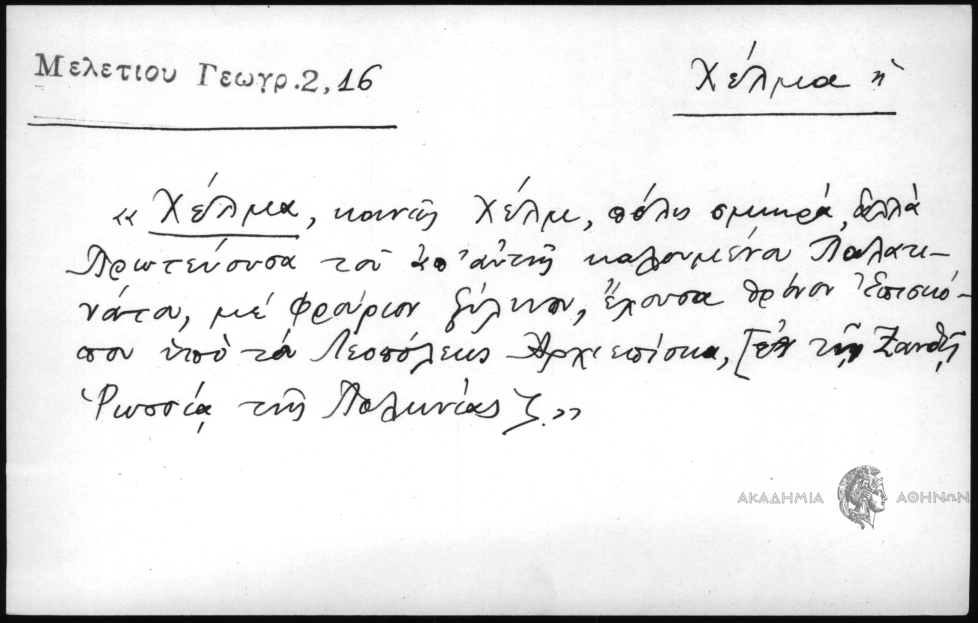 Μελετίου Γεωγρ. 2, 16
Χέλμια ἡ
« Χέλμια, κοινῶς Χέλμ, πόλις σμικρά, ἀλλὰ
Πρωτεύουσα τοῦ ἀπ' αὐτῆς καλουμένου Παλατι-
νάτου, μέ Φρούριον ξύλινον, ἔχουσα θρόνον Ἐπισκό-
που ὑπὸ τὸν Λεοπόλεως Ἀρχιεπίσκο, [ἐν τῇ Ξανθῇ
Ῥωσσίᾳ τῆς Πολωνίας]. »
ΑΚΑΔΗΜΙΑ ΑΘΗΝΩΝ